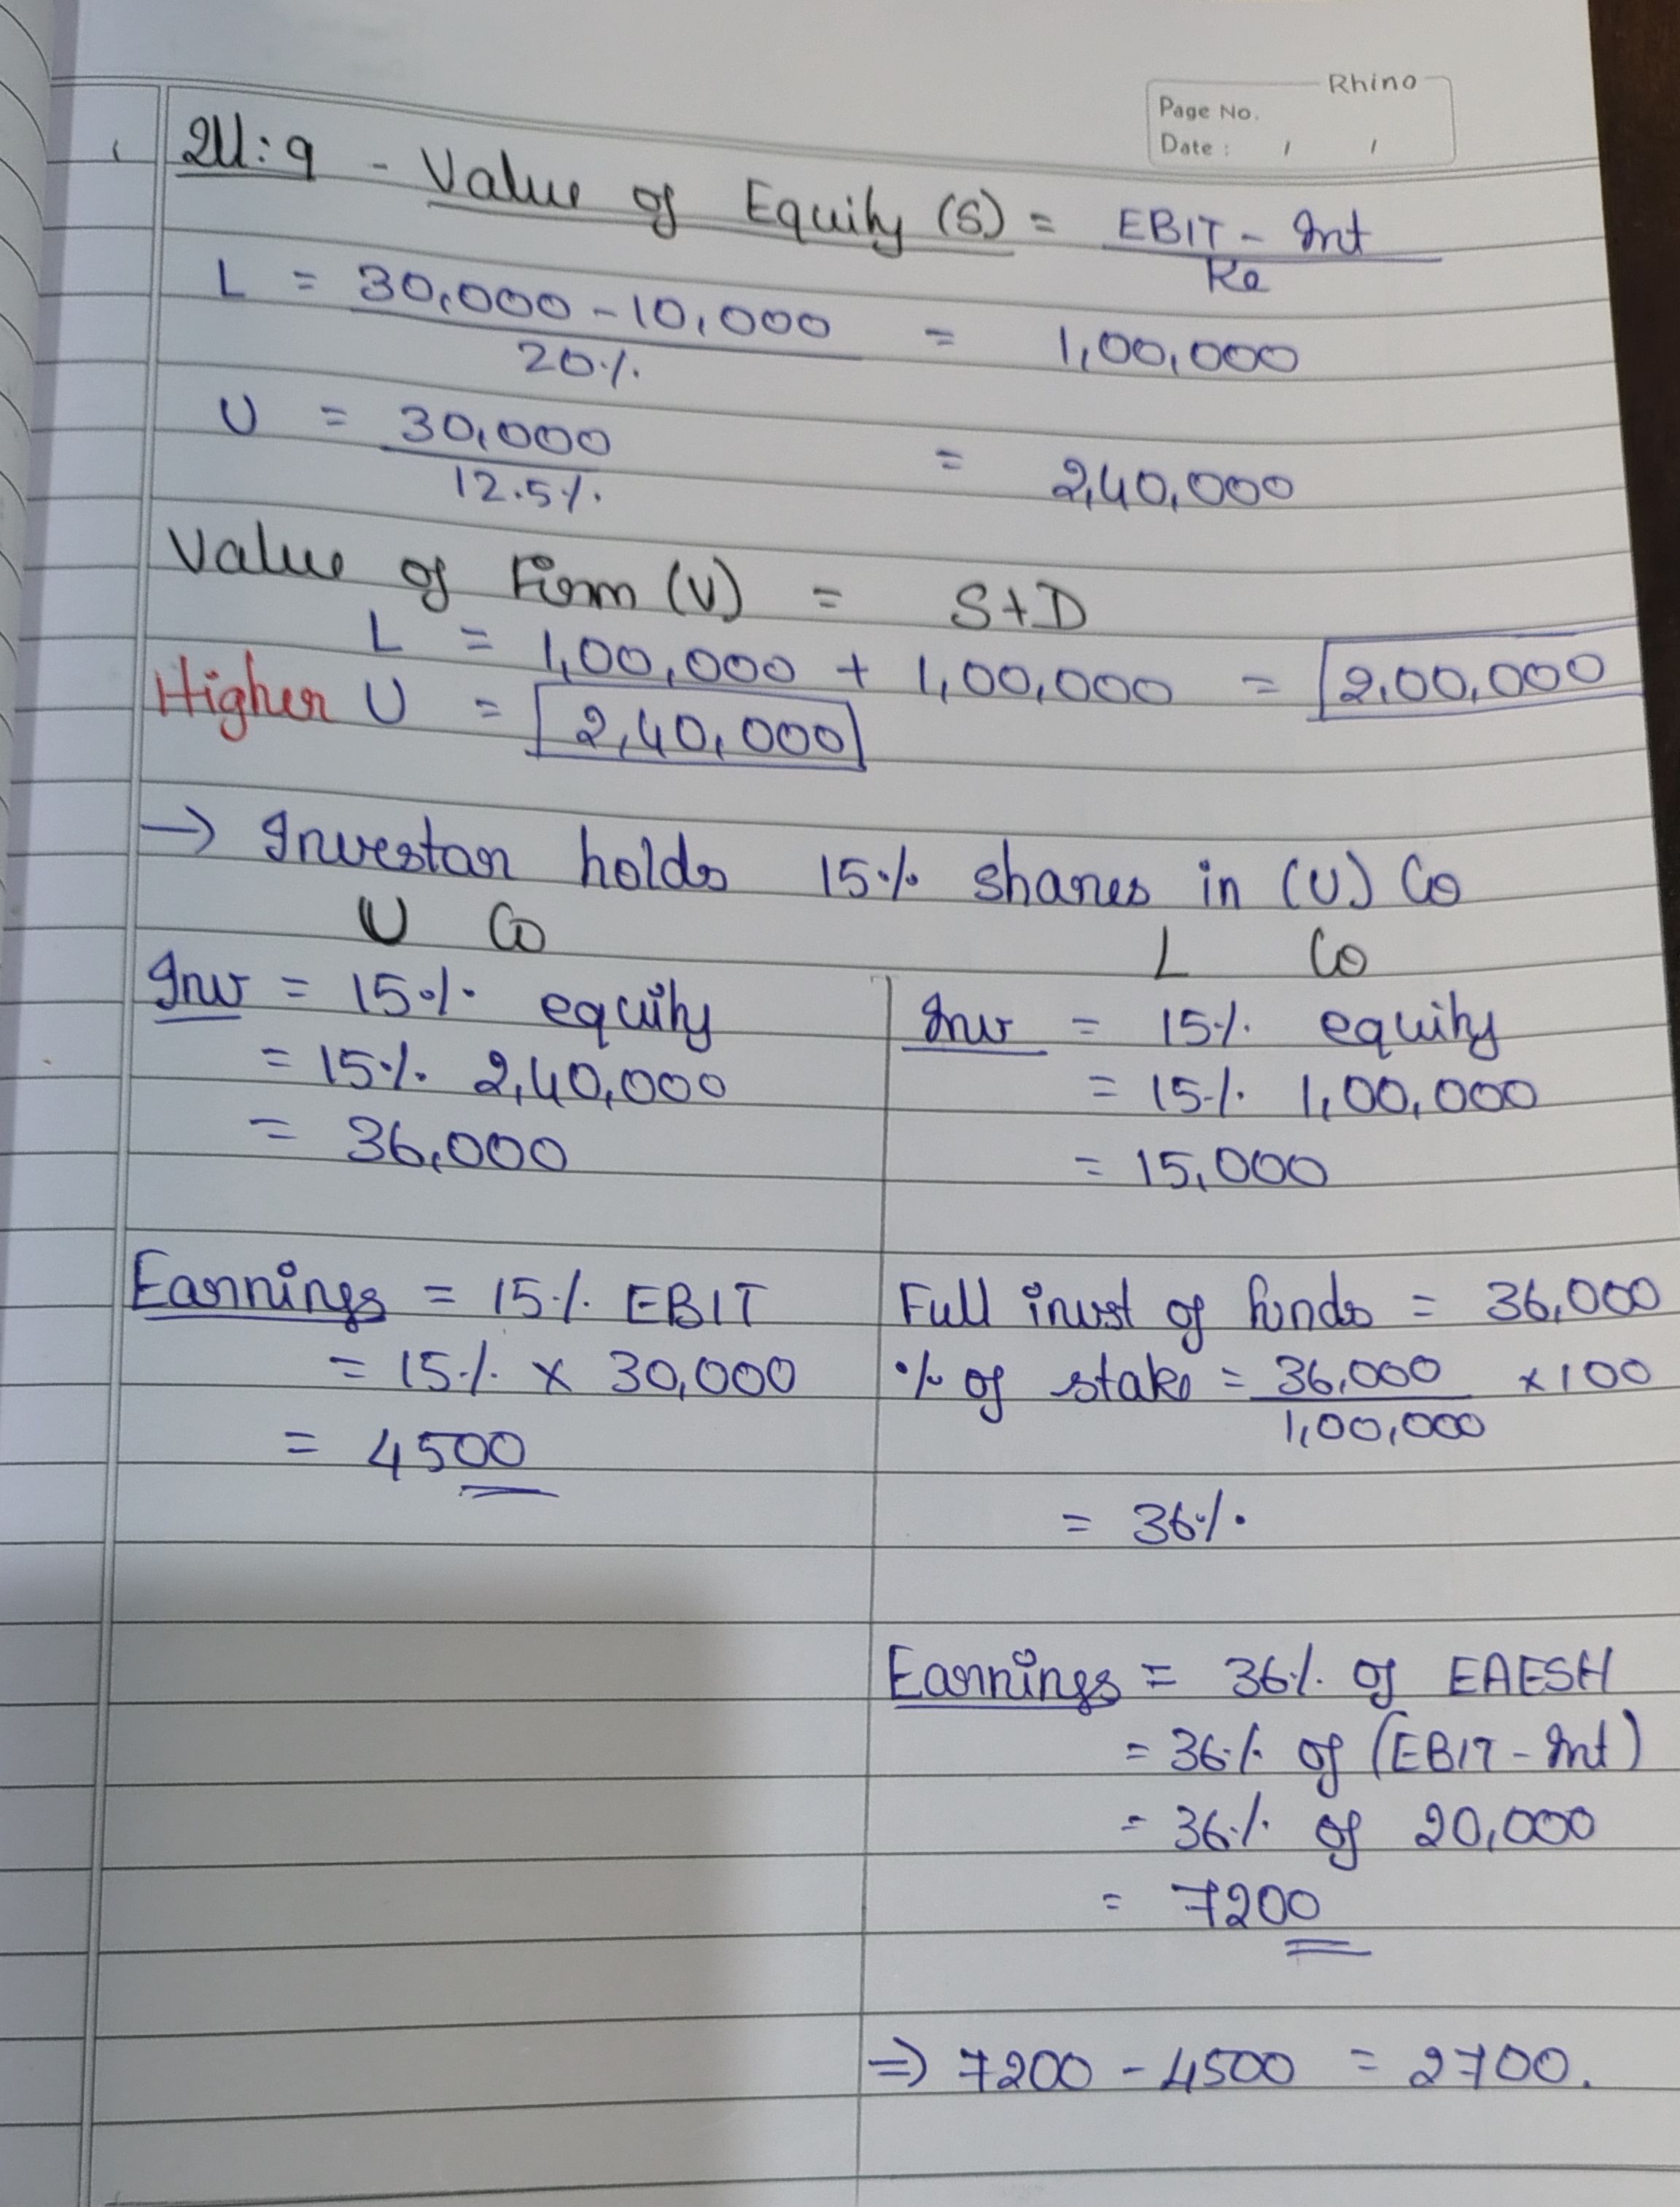 Rhino
Page No.
Date : / /
QU:9 - Value of Equity (S) = EBIT - Int
Ke
L = 30,000 - 10,000 = 1,00,000
20%
U = 30,000 = 2,40,000
12.5%
Value of Firm (V) = S+D
L = 1,00,000 + 1,00,000 = 2,00,000
Higher U = 2,40,000
→ Investor holds 15% shares in (U) Co
U Co
L Co
Inv = 15% equity
= 15% 2,40,000
= 36,000
Inv = 15% equity
= 15% 1,00,000
= 15,000
Earnings = 15% EBIT
= 15% x 30,000
= 4500
Full invst of funds = 36,000
% of stake = 36,000 x 100
1,00,000
= 36%
Earnings = 36% of EAESH
= 36% of (EBIT - Int)
= 36% of 20,000
= 7200
⇒ 7200 - 4500 = 2700.